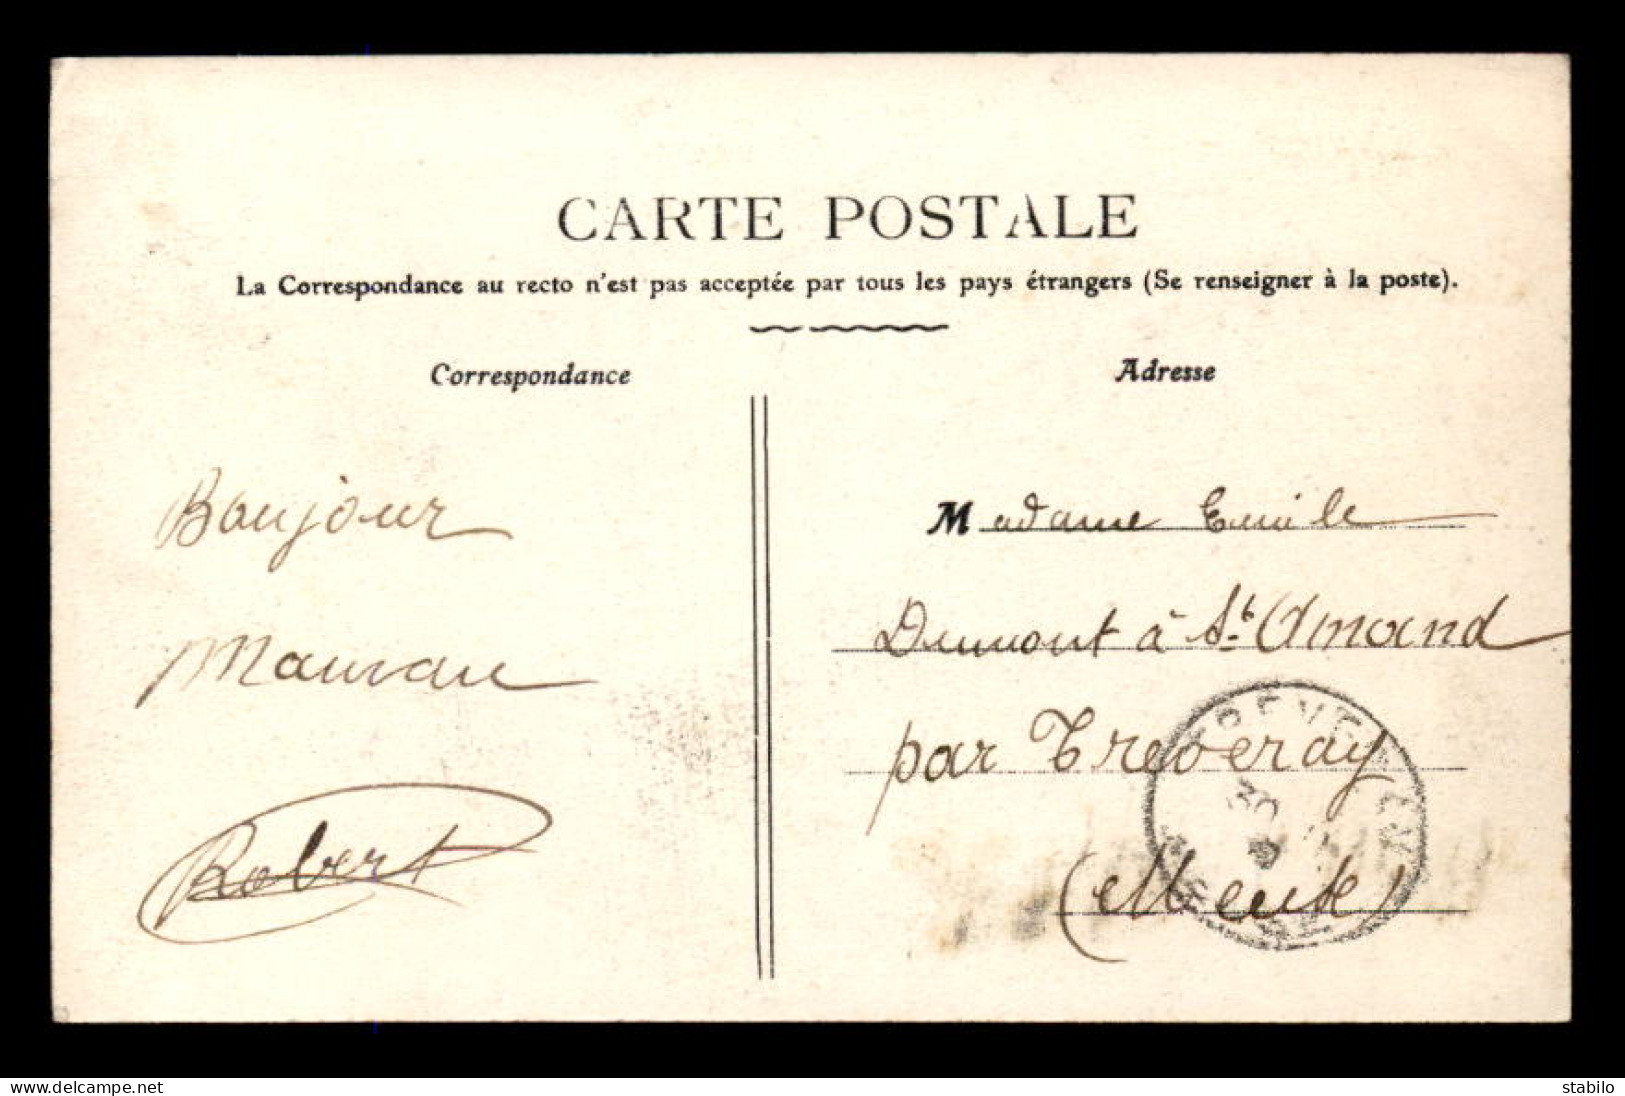 CARTE POSTALE
La Correspondance au recto n'est pas acceptée par tous les pays étrangers (Se renseigner à la poste).
Correspondance
Adresse
Bonjour
Maman
Robert
Madame Emile
Dumont à St. Amand
par Treveray
(Meuse)
www.delcampe.net
stabilo